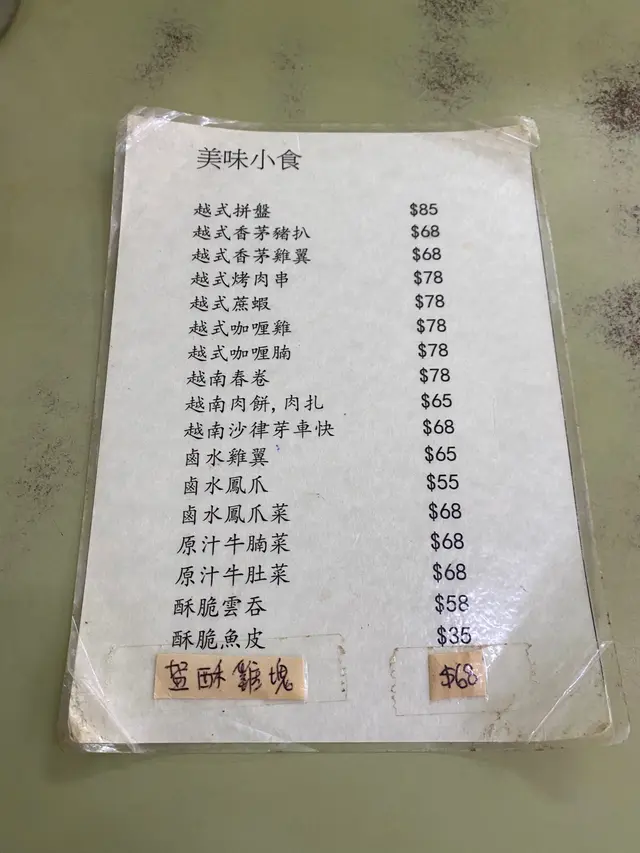 美味小食
越式拼盤 $85
越式香茅豬扒 $68
越式香茅雞翼 $68
越式烤肉串 $78
越式蔗蝦 $78
越式咖喱雞 $78
越式咖喱腩 $78
越南春卷 $78
越南肉餅,肉扎 $65
越南沙律芽車快 $68
鹵水雞翼 $65
鹵水鳳爪 $55
鹵水鳳爪菜 $68
原汁牛腩菜 $68
原汁牛肚菜 $68
酥脆雲吞 $58
酥脆魚皮 $35
盐酥雞塊 $68